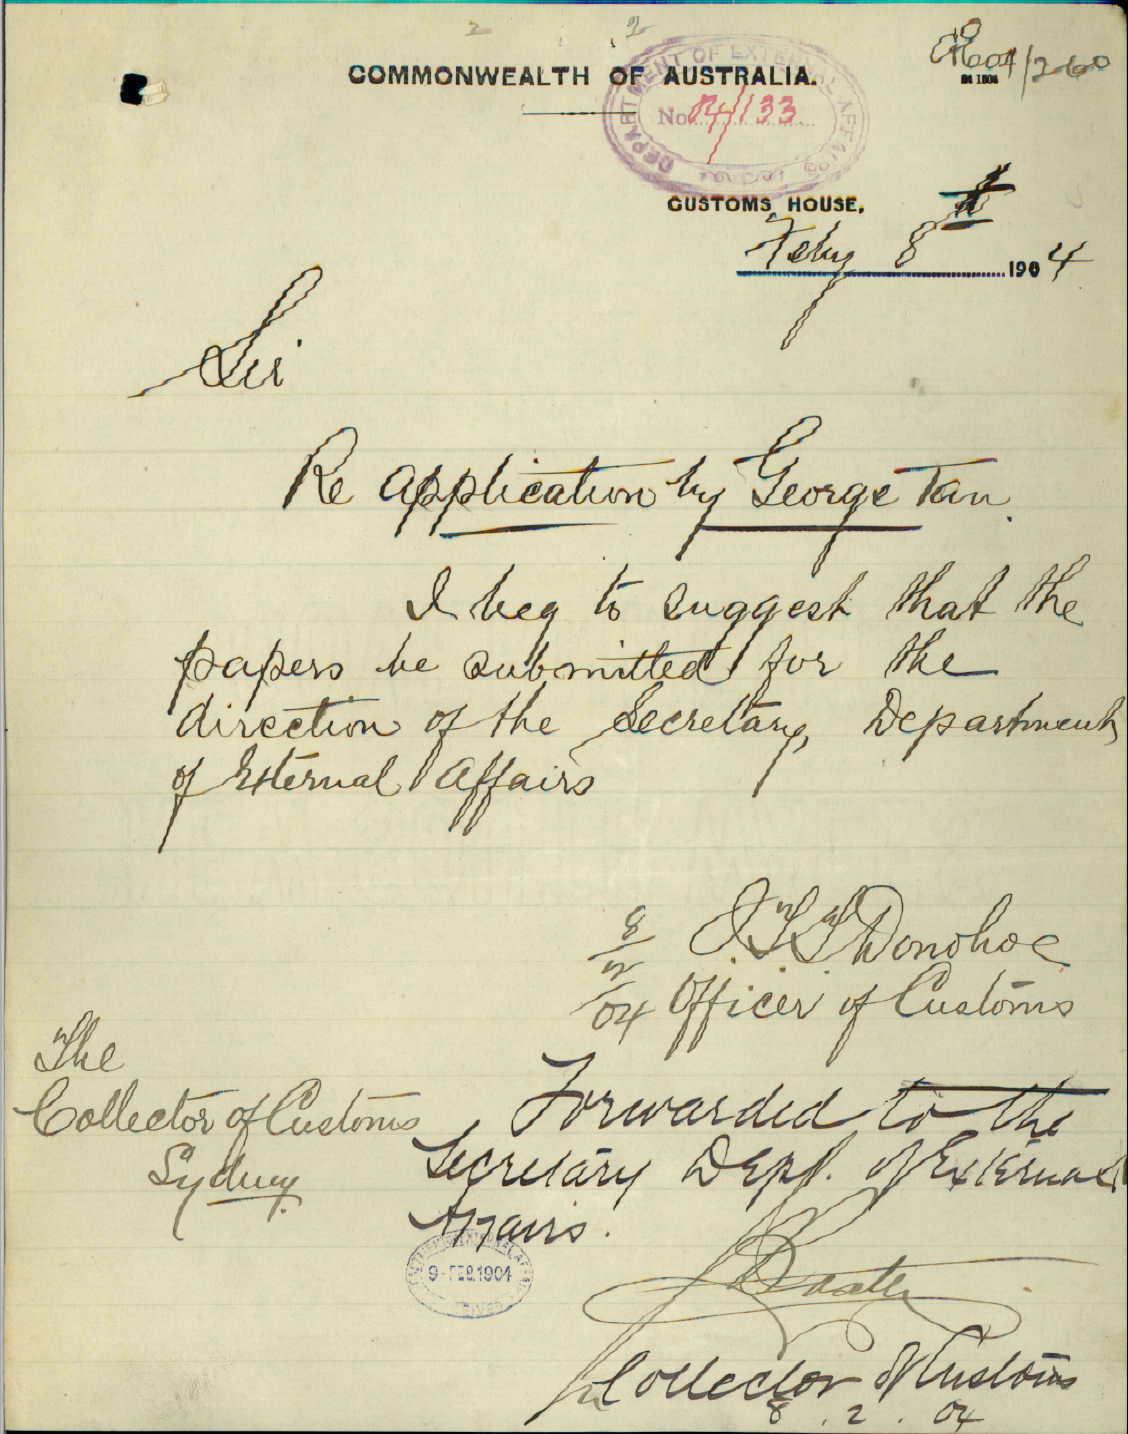 2 2
COMMONWEALTH OF AUSTRALIA.
DEPARTMENT OF EXTERNAL AFFAIRS
No 04/133
04/1260
CUSTOMS HOUSE,
Feby 8th 1904
Sir
Re application by George Tan.
I beg to suggest that the
papers be submitted for the
direction of the Secretary, Department
of External Affairs
8/2/04 J.T.T. Donohoe
Officer of Customs
The
Collector of Customs
Sydney.
Forwarded to the
Secretary Dept. of External
Affairs.
9-FEB.1904
Baxter
Collector of Customs
8.2.04